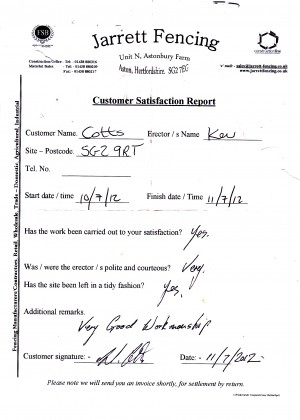 FSB
Jarrett Fencing
Unit N, Astonbury Farm
Aston, Hertfordshire SG2 7EG
constructionline
Construction Office
Material Sales
Customer Satisfaction Report
Customer Name. Cotts Erector / s Name Kev
Site – Postcode. SG2 9RT
Tel. No.
Start date / time 10/7/12 Finish date / Time 11/7/12
Has the work been carried out to your satisfaction? Yes.
Was / were the erector / s polite and courteous? Very.
Has the site been left in a tidy fashion? Yes.
Additional remarks.
Very Good Workmanship
Customer signature: - Date: - 11/7/2012
Please note we will send you an invoice shortly, for settlement by return.
Fencing Manufacturers/Contractors, Retail, Wholesale, Trade – Domestic, Agricultural, Industrial